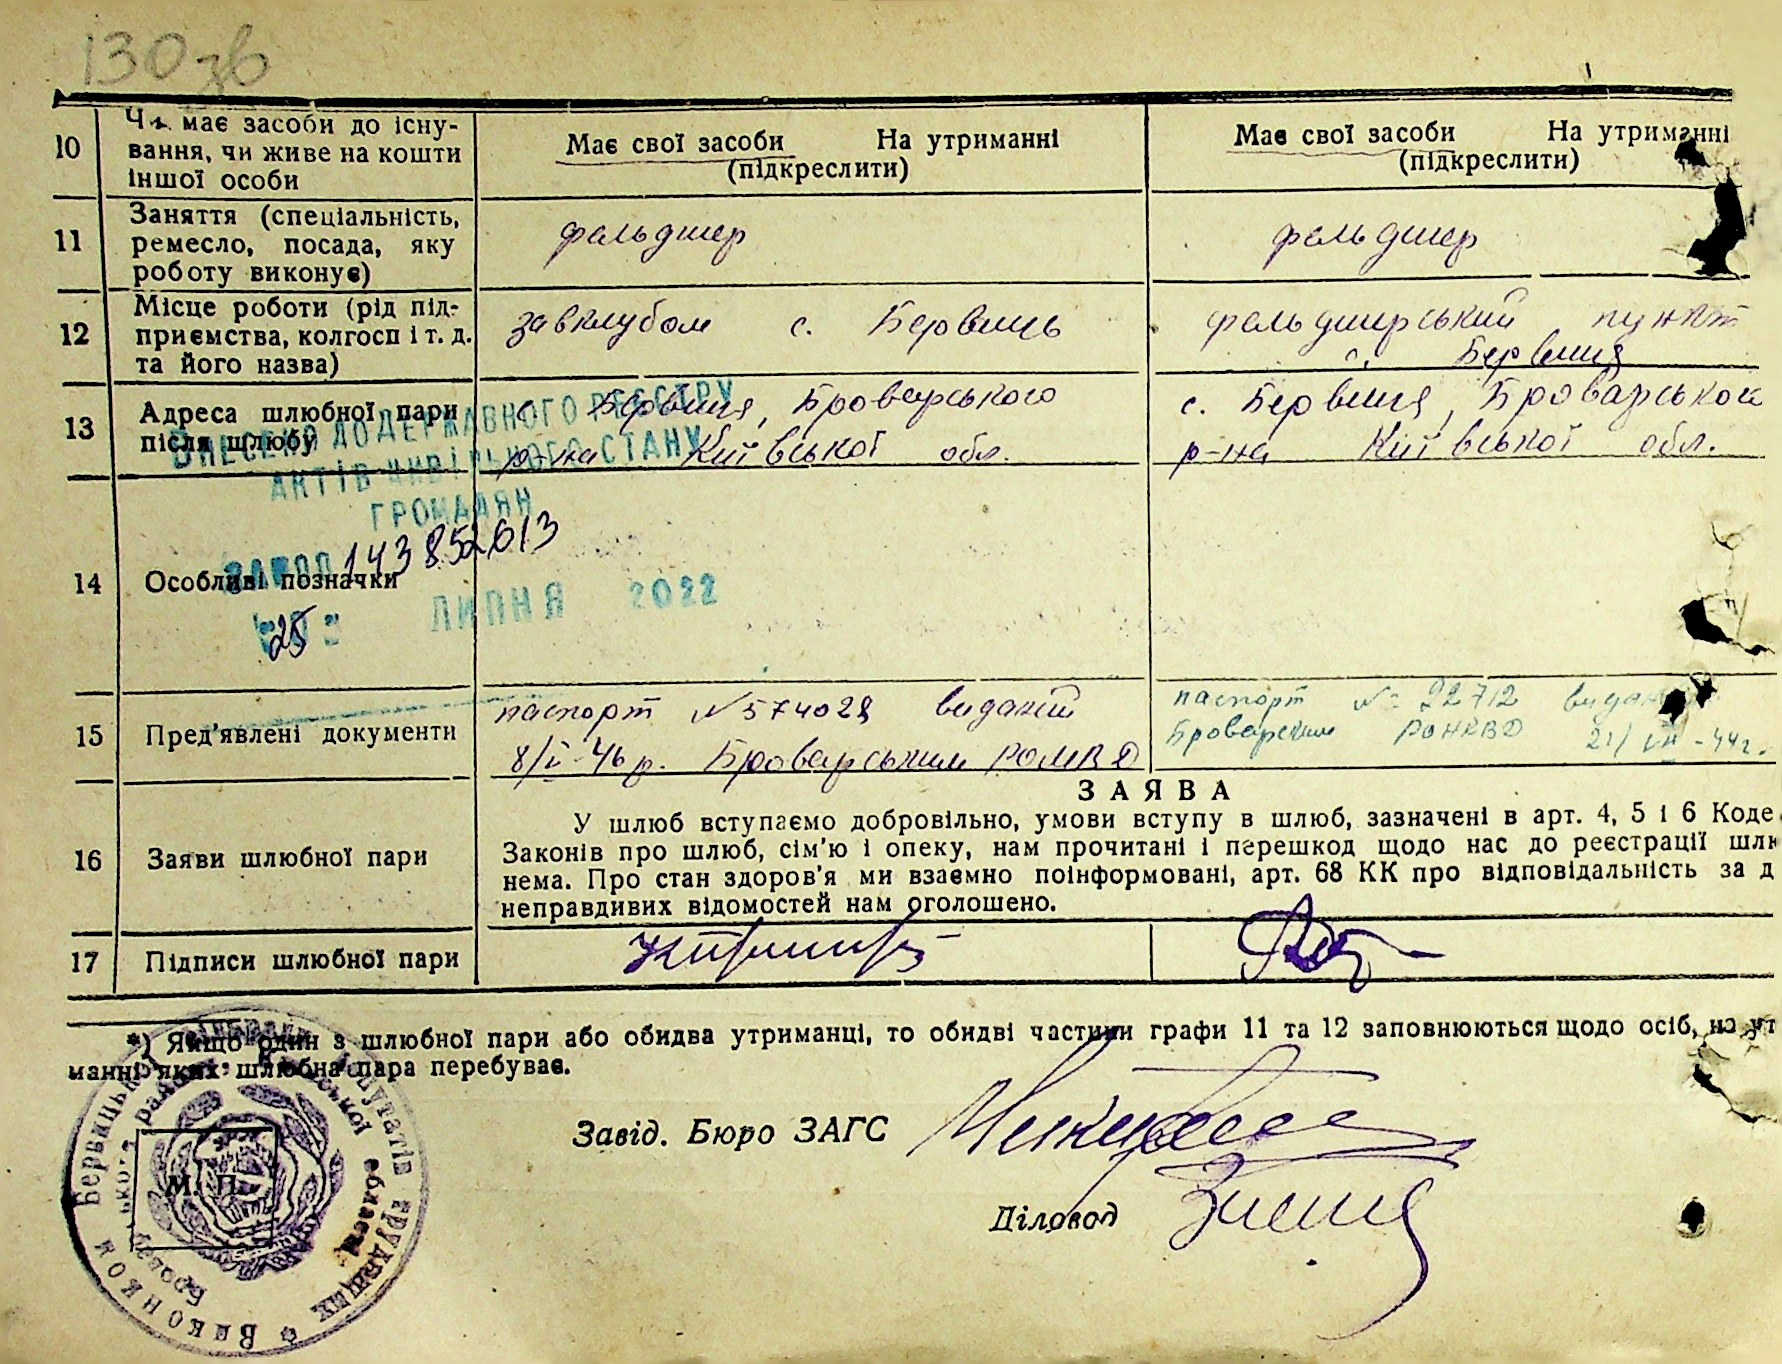 130 зв
10 Чи має засоби до існу-
вання, чи живе на кошти
іншої особи
Має свої засоби На утриманні
(підкреслити)
Має свої засоби На утриманні
(підкреслити)
11 Заняття (спеціальність,
ремесло, посада, яку
роботу виконує)
фельдшер
фельдшер
12 Місце роботи (рід під-
приємства, колгосп і т. д.
та його назва)
завклубом с. Бервиць
фельдшерський пункт
с. Бервиця
13 Адреса шлюбної пари
після шлюбу
с. Бервиця, Броварського
р-на Київської обл.
с. Бервиця, Броварського
р-на Київської обл.
ВНЕСЕНО ДО ДЕРЖАВНОГО РЕЄСТРУ
АКТІВ ЦИВІЛЬНОГО СТАНУ
ГРОМАДЯН
143852613
25 ЛИПНЯ 2022
14 Особливі позначки
15 Пред'явлені документи
паспорт № 574028 виданий
8/V-46 р. Броварським РОМВД
паспорт № 22712 видан
Броварским РОНКВД 21/VII-44г.
16 Заяви шлюбної пари
ЗАЯВА
У шлюб вступаємо добровільно, умови вступу в шлюб, зазначені в арт. 4, 5 і 6 Коде
Законів про шлюб, сім'ю і опеку, нам прочитані і перешкод щодо нас до реєстрації шлю
нема. Про стан здоров'я ми взаємно поінформовані, арт. 68 КК про відповідальність за д
неправдивих відомостей нам оголошено.
17 Підписи шлюбної пари
*) Якщо один з шлюбної пари або обидва утриманці, то обидві частини графи 11 та 12 заповнюються щодо осіб, на ут
манні яких шлюбна пара перебуває.
Завід. Бюро ЗАГС
М. П.
Діловод
Виконком Бервицької депутатів трудящих